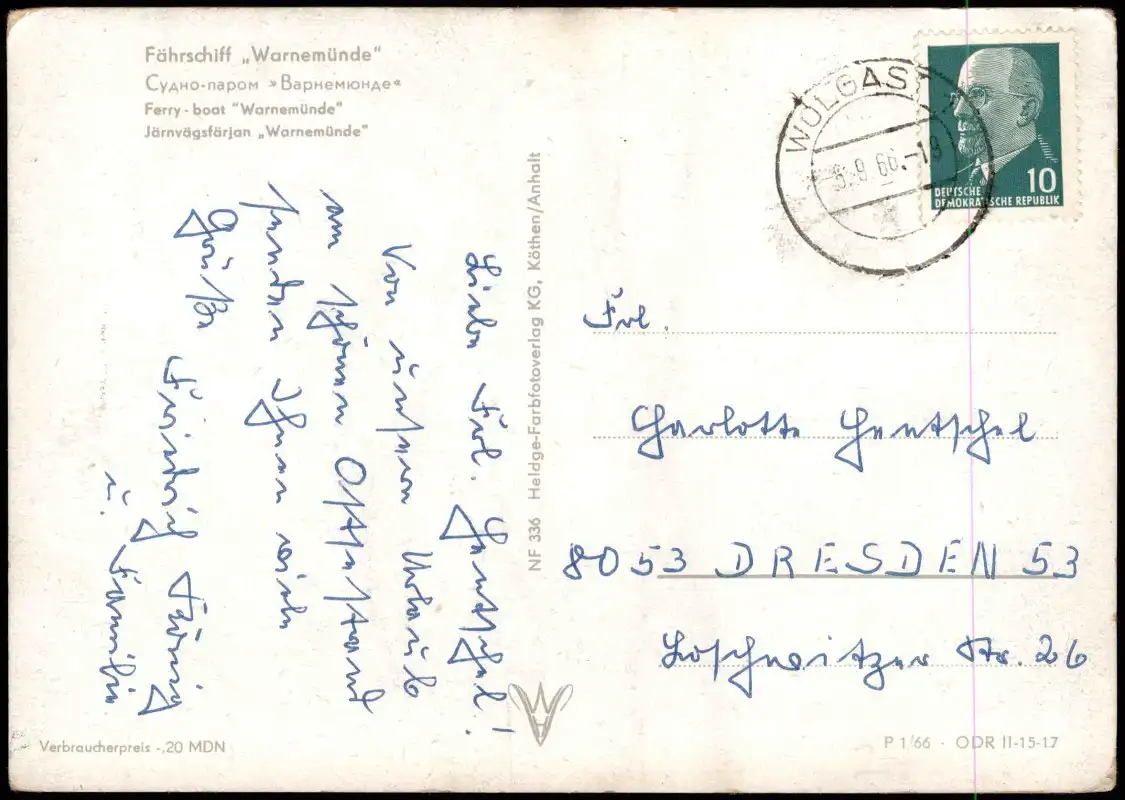 Fährschiff „Warnemünde"
Судно-паром »Варнемюнде«
Ferry-boat "Warnemünde"
Järnvägsfärjan „Warnemünde"
Liebe Frl. Hentschel!
Von unsern Urlaub
am schönen Ostsestand
senden Ihnen viele
Grüße
Friedrich
u. Familie
NF 336 Heldge-Farbfotoverlag KG, Köthen/Anhalt
Verbraucherpreis -,20 MDN
WOLGAST
5.9.66.-19
10
DEUTSCHE
DEMOKRATISCHE REPUBLIK
Frl.
Charlotte Hentschel
8053 DRESDEN 53
Loschwitzer Str. 26
P 1/66 · ODR II-15-17